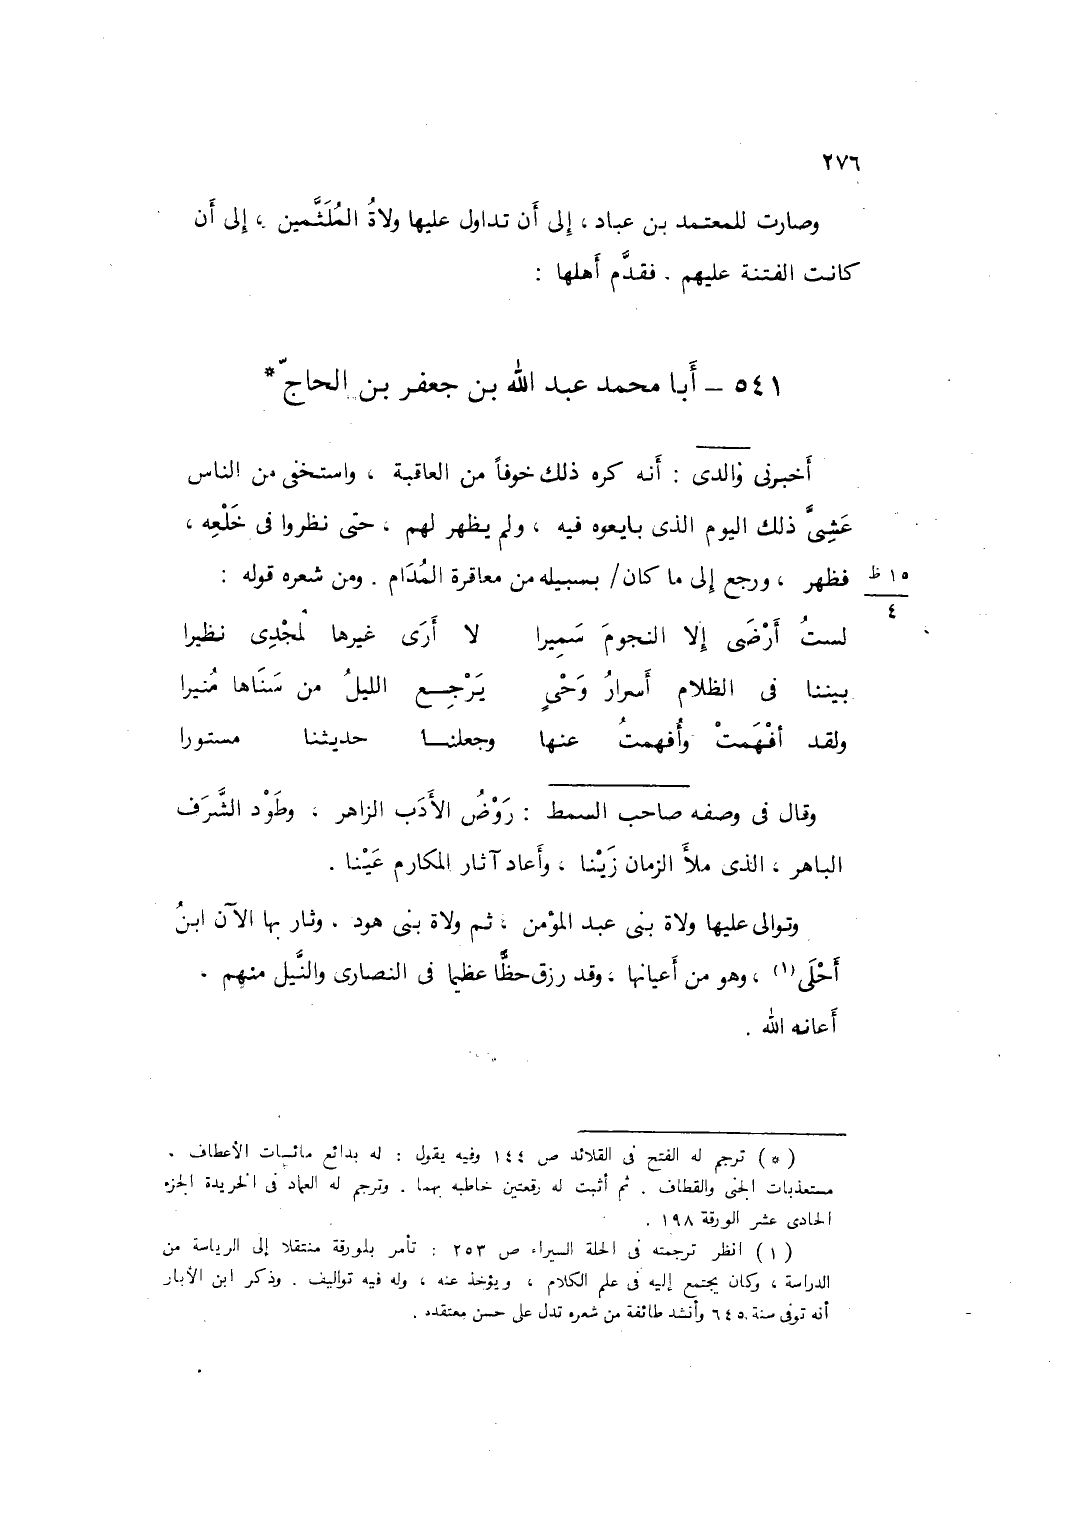 ٢٧٦
وصارت للمعتمد بن عباد ، إلى أن تداول عليها ولاةُ المُلَثَّمين ، إلى أن
كانت الفتنة عليهم . فقدَّم أهلها :
٥٤١ – أبا محمد عبد الله بن جعفر بن الحاجّ*
أخبرنى والدى : أنه كره ذلك خوفاً من العاقبة ، واستخفى من الناس
عَشِىَّ ذلك اليوم الذى بايعوه فيه ، ولم يظهر لهم ، حتى نظروا فى خَلْعِه ،
فظهر ، ورجع إلى ما كان/ بسبيله من معاقرة المُدَام . ومن شعره قوله :
١٥ ظ
٤
لستُ أَرْضَى إلا النجومَ سَمِيرا لا أَرَى غيرها لمجْدِى نظيرا
بيننا فى الظلام أَسرارُ وَحْىٍ يَرْجِع الليلُ من سَنَاها مُنيرا
ولقد أفْهَمَتْ وأُفهمتُ عنها وجعلنا حديثنا مستورا
وقال فى وصفه صاحب السمط : رَوْضُ الأَدَب الزاهر ، وطَوْد الشَّرَف
الباهر ، الذى ملأَ الزمان زَيْنا ، وأَعاد آثار المكارم عَيْنا .
وتوالى عليها ولاة بنى عبد المؤمن ، ثم ولاة بنى هود . وثار بها الآن ابنُ
أَحْلَى(١) ، وهو من أَعيانها ، وقد رزق حظًّا عظيما فى النصارى والنَّيل منهم .
أَعانه الله .
(*) ترجم له الفتح فى القلائد ص ١٤٤ وفيه يقول : له بدائع مائسات الأعطاف .
مستعذبات الجنى والقطاف . ثم أثبت له رقعتين خاطبه بهما . وترجم له العماد فى الخريدة الجزء
الحادى عشر الورقة ١٩٨ .
(١) انظر ترجمته فى الحلة السيراء ص ٢٥٣ : تأمر بلورقة منتقلا إلى الرياسة من
الدراسة ، وكان يجتمع إليه فى علم الكلام ، ويؤخذ عنه ، وله فيه تواليف . وذكر ابن الأبار
أنه توفى سنة ٦٤٥ وأنشد طائفة من شعره تدل على حسن معتقده .